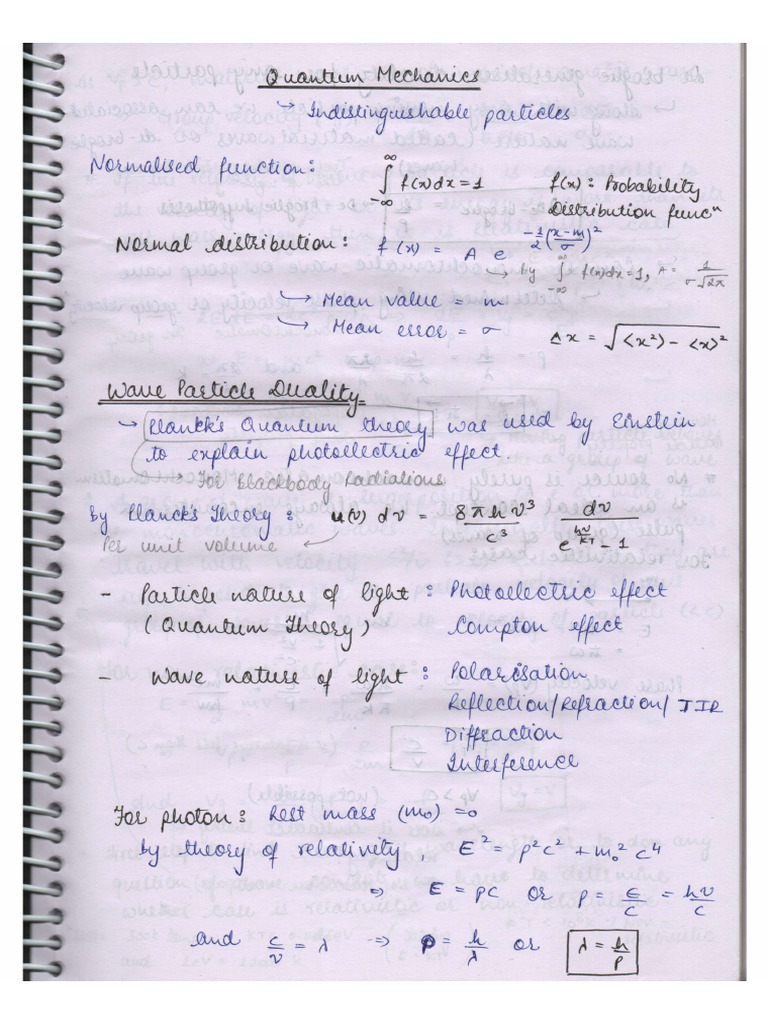 Quantum Mechanics
→ Indistinguishable particles
Normalised function: ∫_{-∞}^{∞} f(x)dx = 1 f(x): Probability
Distribution funcⁿ
Normal distribution: f(x) = A e^{-1/2((x-m)/σ)²}
→ by ∫_{-∞}^{∞} f(x)dx = 1, A = 1/(σ√2π)
→ Mean value = m
→ Mean error = σ Δx = √(⟨x²⟩ - ⟨x⟩²)
Wave Particle Duality
→ Planck's Quantum theory was used by Einstein
to explain photoelectric effect.
→ For Blackbody Radiations
By Planck's Theory: u(ν) dν = 8πhν³/c³ dν/(e^{hν/kT} - 1)
Per unit volume
- Particle nature of light : Photoelectric effect
(Quantum Theory) Compton effect
- Wave nature of light : Polarisation
Reflection/Refraction/TIR
Diffraction
Interference
For photon: Rest mass (m₀) = 0
By theory of relativity, E² = p²c² + m₀²c⁴
⇒ E = pc or p = E/c = hν/c
and c/ν = λ ⇒ p = h/λ or λ = h/p